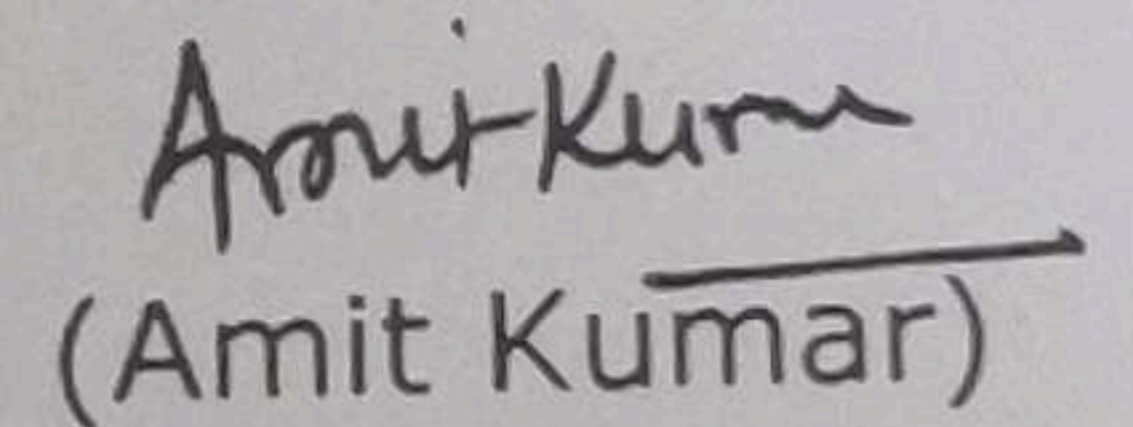 Amit Kumar
(Amit Kumar)